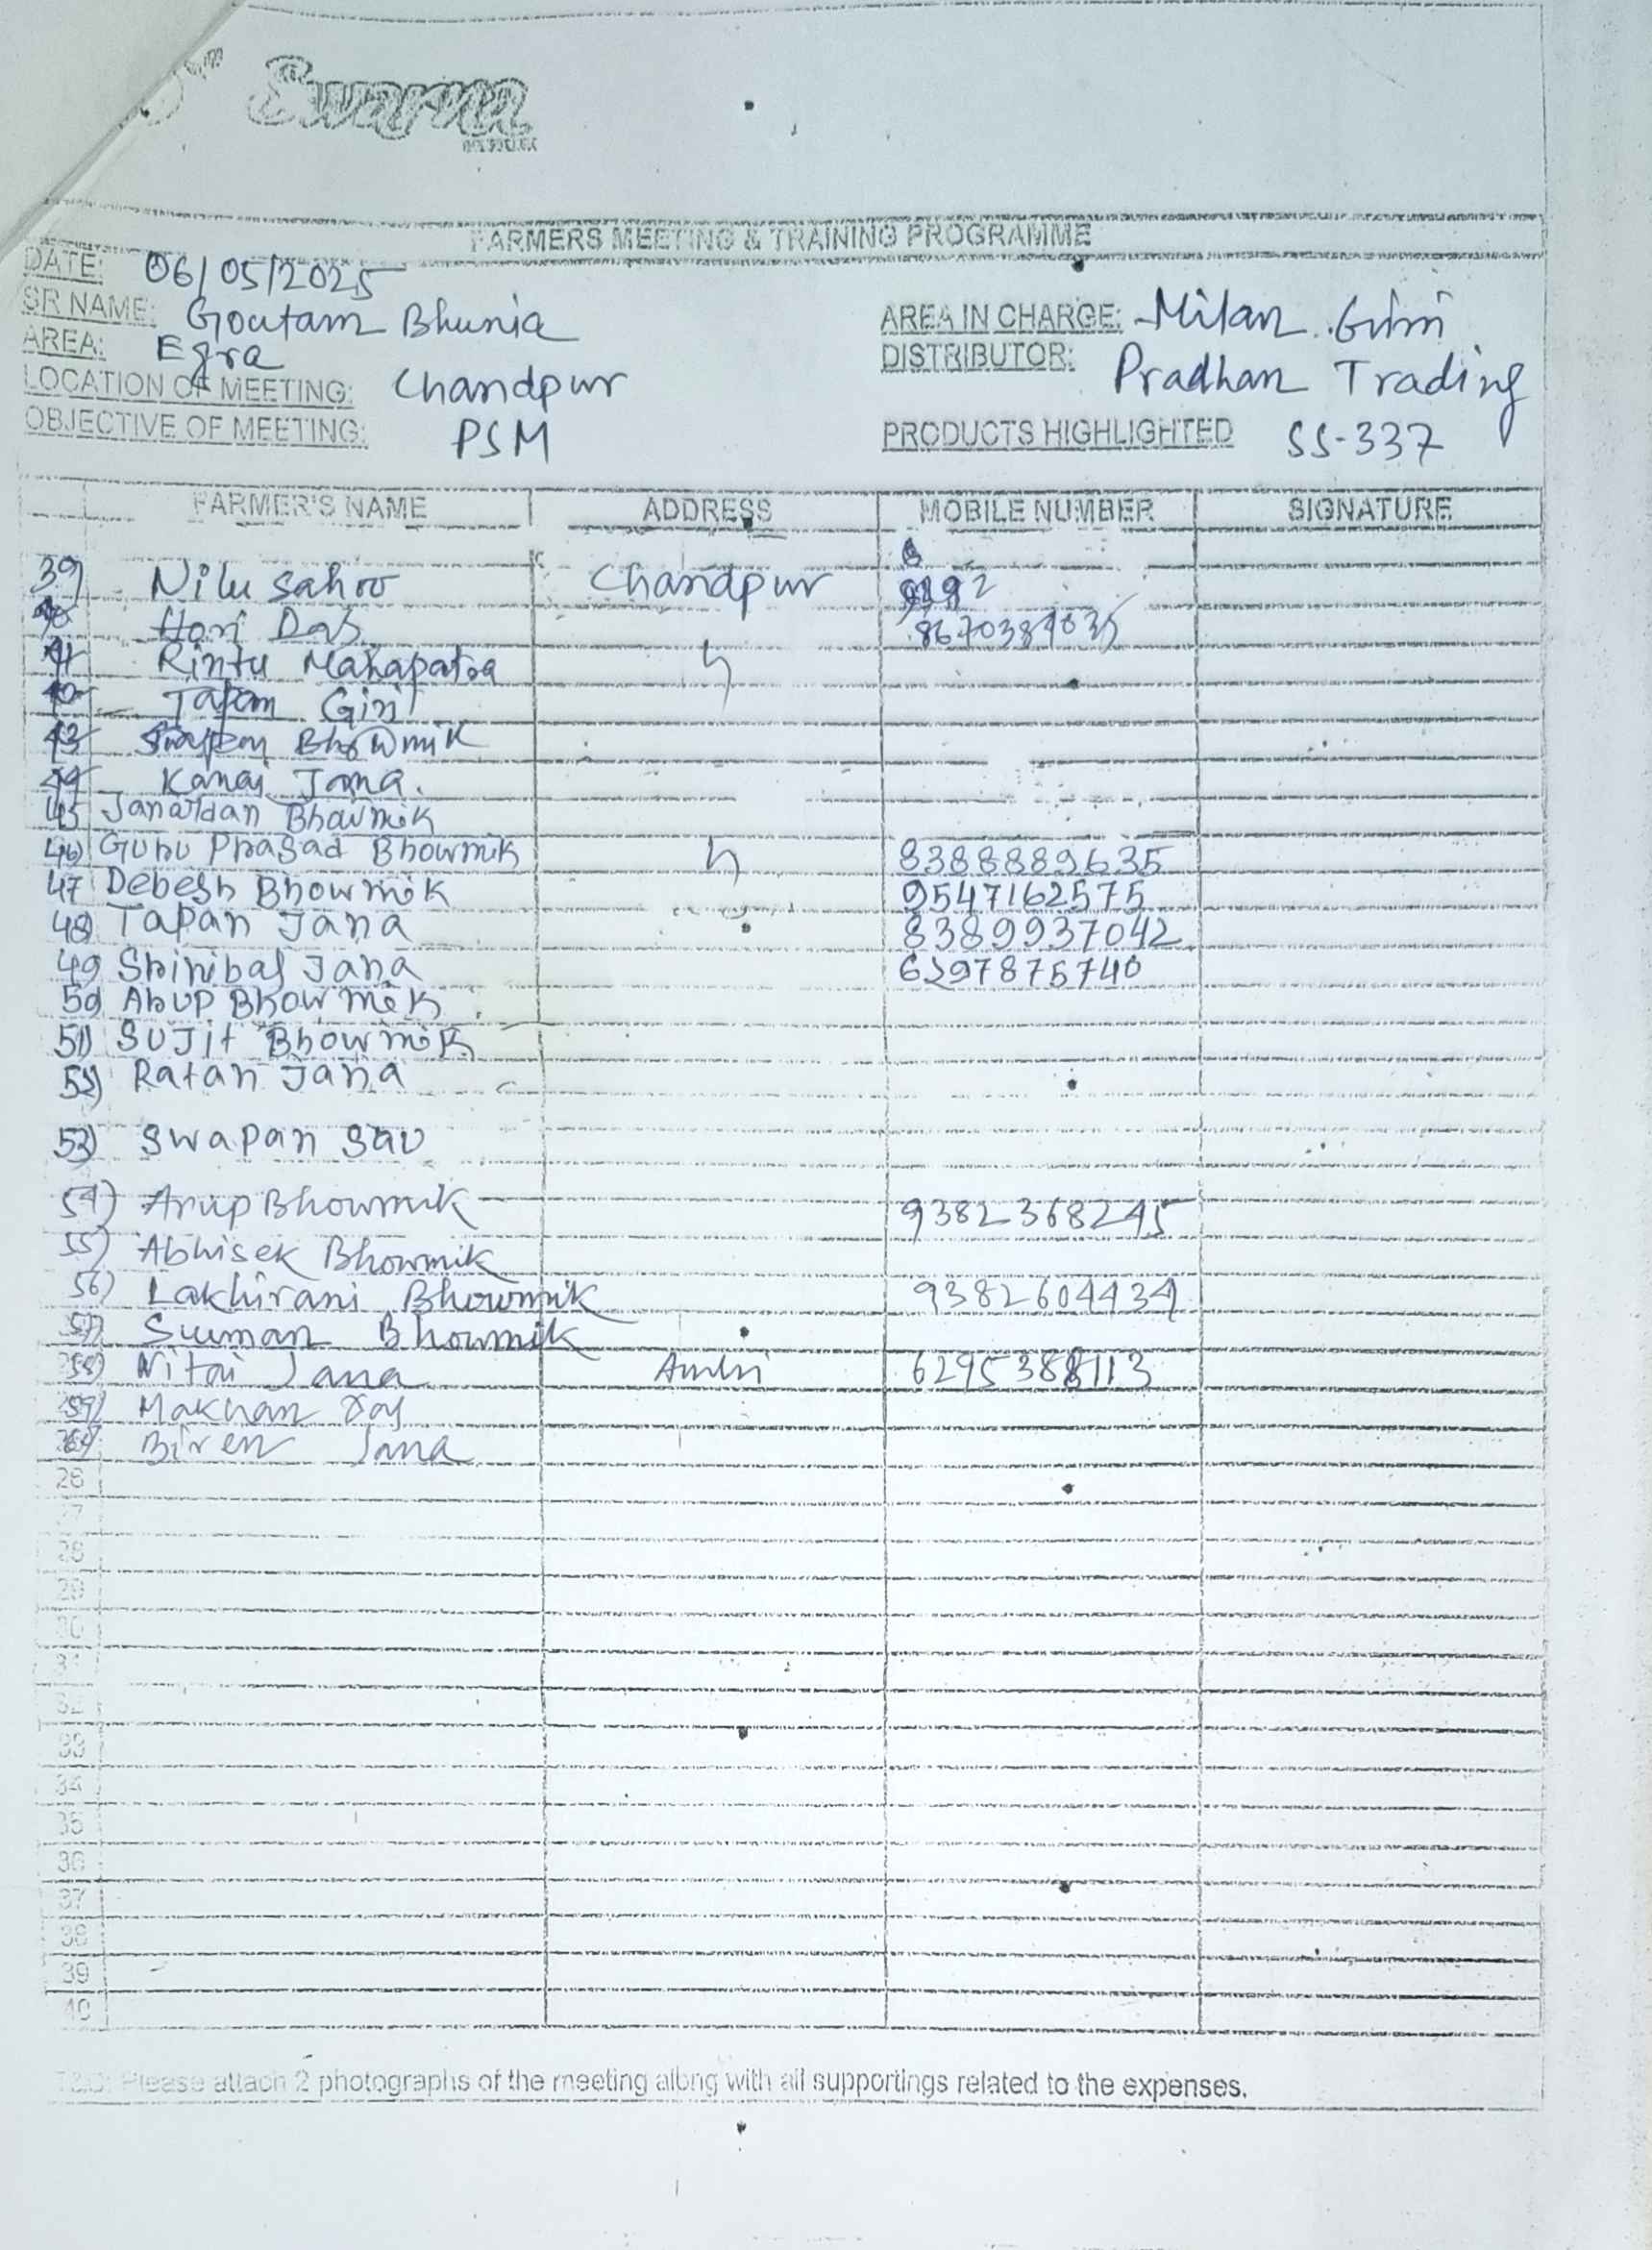 Swarna
FARMERS MEETING & TRAINING PROGRAMME
DATE: 06/05/2025
SR NAME: Goutam Bhunia
AREA IN CHARGE: Milan Giri
AREA: Egra
DISTRIBUTOR: Pradhan Trading
LOCATION OF MEETING: Chandpur
OBJECTIVE OF MEETING: PSM
PRODUCTS HIGHLIGHTED SS-337
FARMER'S NAME ADDRESS MOBILE NUMBER SIGNATURE
39) Nilu Sahoo Chandpur
Hari Das
41 Rintu Mahapatra
Tapan Giri
43 Bhowmik
44 Kanai Jana.
45 Janardan Bhaumik
46) Guru Prasad Bhowmik 8388889635
47 Debesh Bhowmik 9547162575
48) Tapan Jana 8389937042
49 Srinibas Jana 6297875740
50) Anup Bhowmik
51) Sujit Bhowmik
52) Ratan Jana
53) Swapan Sau
54) Arup Bhowmik 9382368245
55) Abhisek Bhowmik
56) Lakhirani Bhowmik 9382604434
57) Suman Bhowmik
58) Nitai Jana 6295388113
59) Makhan Das
Biren Jana
26
27
28
29
30
31
32
33
34
35
36
37
38
39
40
Please attach 2 photographs of the meeting along with all supportings related to the expenses.